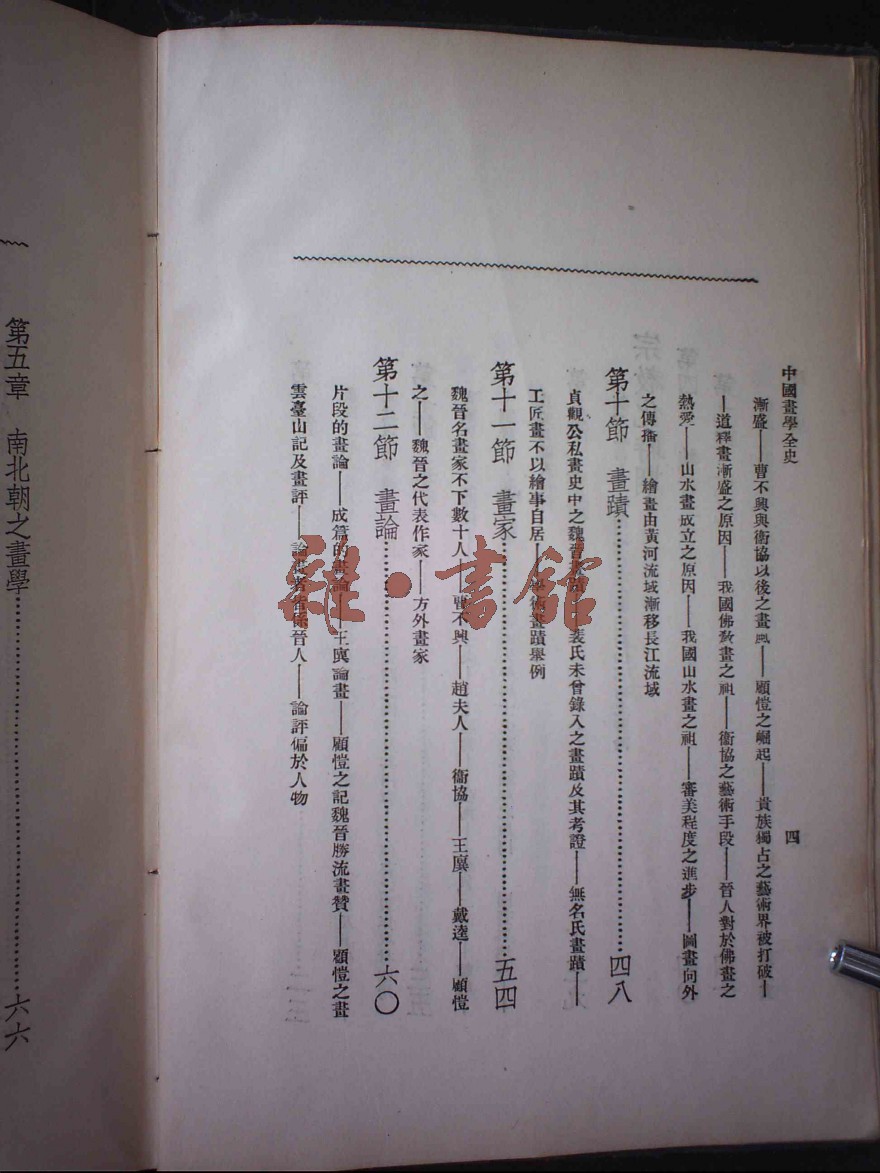 中國畫學全史 四
漸盛——曹不興與衞協以後之畫風——顧愷之崛起——貴族獨占之藝術界被打破—
—道釋畫漸盛之原因——我國佛敎畫之祖——衞協之藝術手段——晉人對於佛畫之
熱愛——山水畫成立之原因——我國山水畫之祖——審美程度之進步——圖畫向外
之傳播——繪畫由黃河流域漸移長江流域
第十節 畫蹟……………………四八
貞觀公私畫史中之魏晉畫蹟——裴氏未曾錄入之畫蹟及其考證——無名氏畫蹟——
工匠畫不以繪事自居——學術畫蹟舉例
第十一節 畫家……………………五四
魏晉名畫家不下數十人——曹不興——趙夫人——衞協——王廙——戴逵——顧愷
之——魏晉之代表作家——方外畫家
第十二節 畫論……………………六〇
片段的畫論——成篇的畫論——王廙論畫——顧愷之記魏晉勝流畫贊——顧愷之畫
雲臺山記及畫評——論者皆係晉人——論評偏於人物
第五章 南北朝之畫學……………………六六
雜·書館